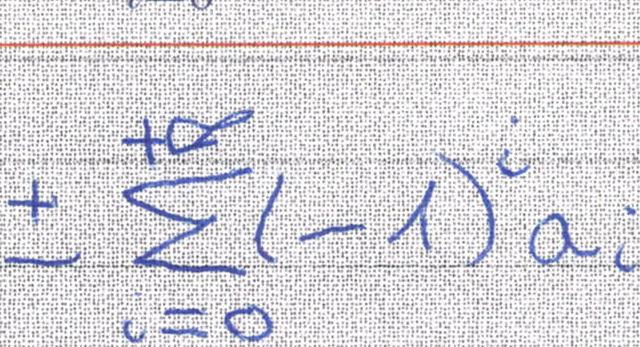 ± \sum_{i=0}^{+\infty} (-1)^i a_i